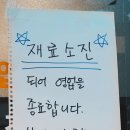 재료소진
되어 영업을
종료합니다.